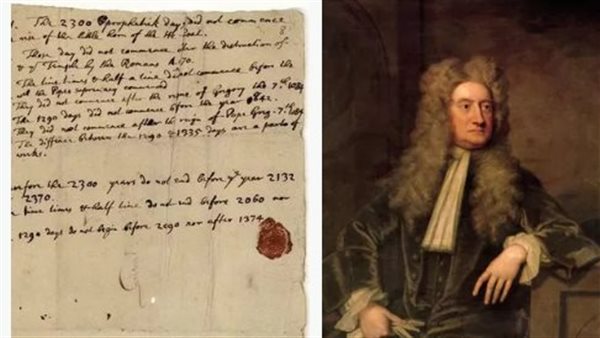 1. The 2300 prophetick days did not commence
rise of the little horn of the He Goat.
Those day did not commence after the destruction of
& ye Temple by the Romans A. 70.
The time times & half a time did not commence before the
of the Popes supremacy commenced
They did not commence after the reigne of Gregory the 7th 1084
The 1290 days did not commence before the year 842.
They did not commence after the reign of Pope Greg. 7th 1084
The diffence between the 1290 & 1335 days are a parts of
weeks.
the 2300 years do not end before ye year 2132
2370.
time times & half time do not end before 2060 nor
1290 days do not begin before 2090 nor after 1374